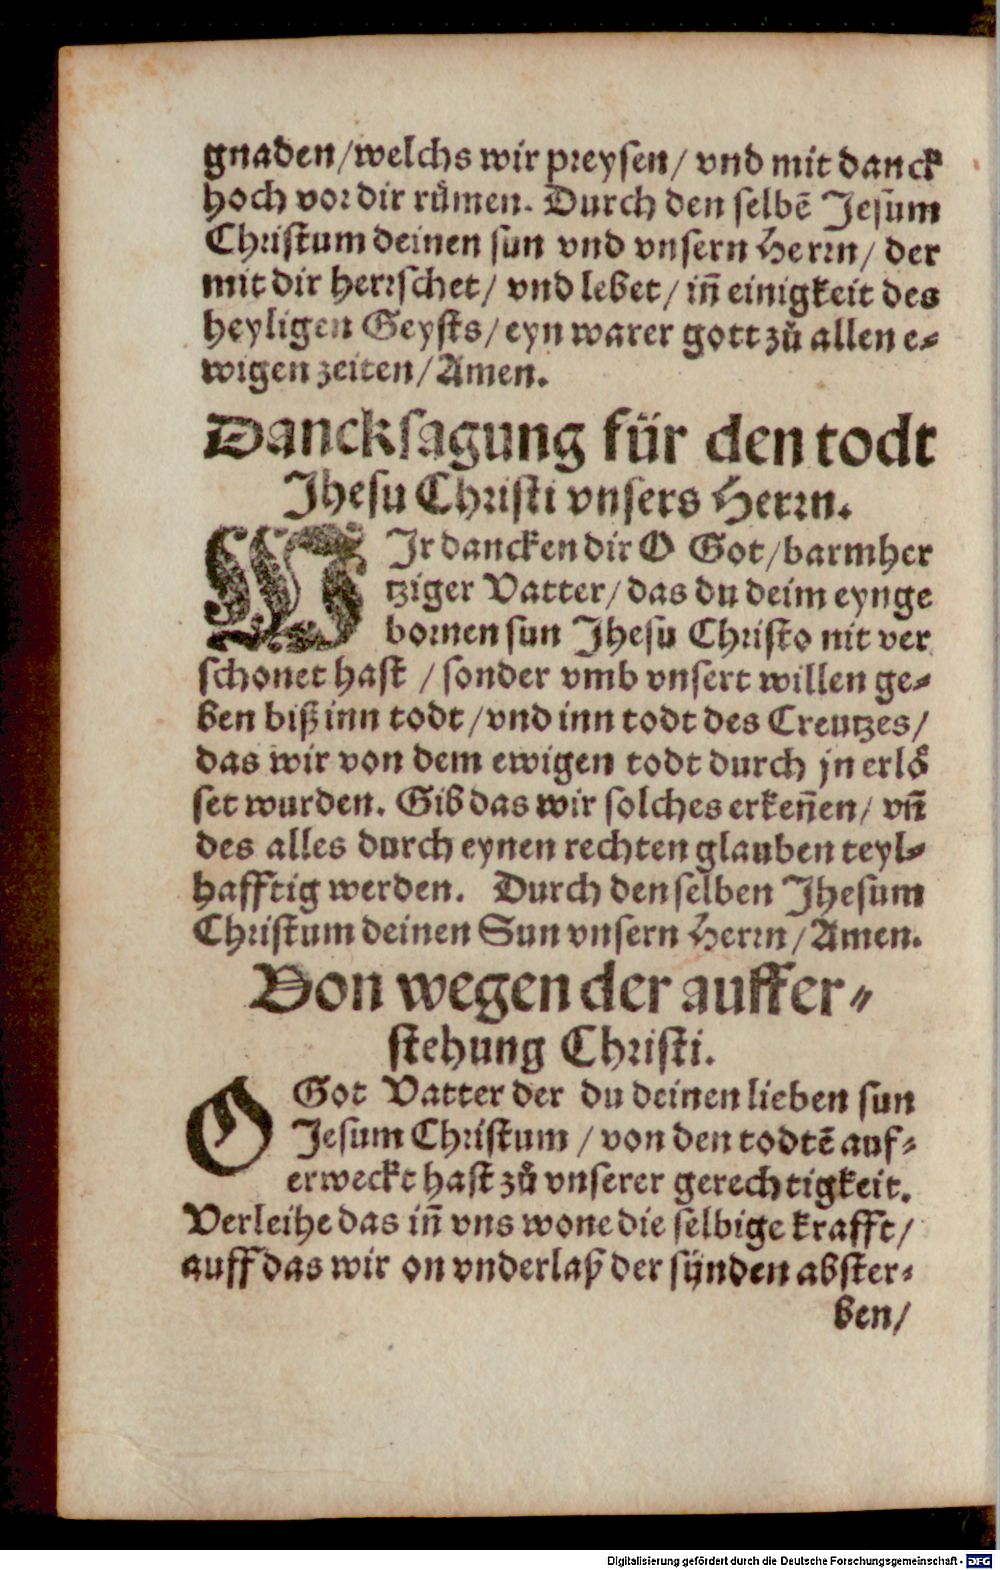 gnaden/welchs wir preysen/ vnd mit danck
hoch vor dir růmen. Durch den selbē Jesum
Christum deinen sun vnd vnsern Herrn/ der
mit dir herrschet/ vnd lebet/ iñ einigkeit des
heyligen Geysts/ eyn warer gott zů allen e-
wigen zeiten/Amen.
Dancksagung für den todt
Jhesu Christi vnsers Herrn.
WJr dancken dir O Got/barmher
tziger Vatter/ das du deim eynge
bornen sun Jhesu Christo nit ver
schonet hast / sonder vmb vnsert willen ge-
ben biß inn todt /vnd inn todt des Creutzes/
das wir von dem ewigen todt durch jn erlö
set wurden. Gib das wir solches erkeñen/ vñ
des alles durch eynen rechten glauben teyl-
hafftig werden. Durch den selben Jhesum
Christum deinen Sun vnsern Herrn/Amen.
Von wegen der auffer-
stehung Christi.
O Got Vatter der du deinen lieben sun
Jesum Christum / von den todtē auf-
erweckt hast zů vnserer gerechtigkeit.
Verleihe das iñ vns wone die selbige krafft/
auff das wir on vnderlaß der sünden abster-
ben/
Digitalisierung gefördert durch die Deutsche Forschungsgemeinschaft - DFG